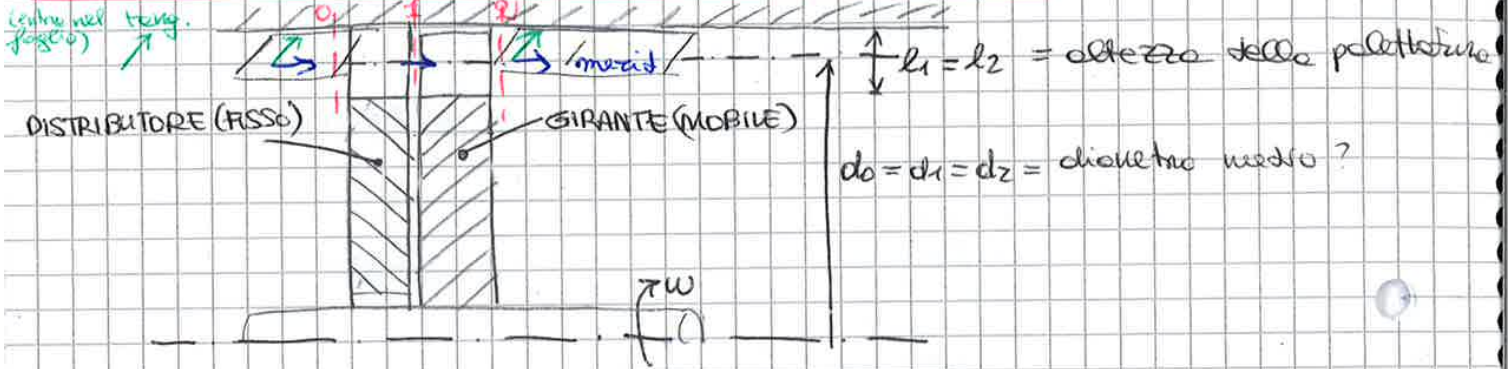 (entra nel tang.
foglio)
0 1 2
merid
l1 = l2 = altezza della palettatura
DISTRIBUTORE (FISSO)
GIRANTE (MOBILE)
d0 = d1 = d2 = diametro medio ?
ω